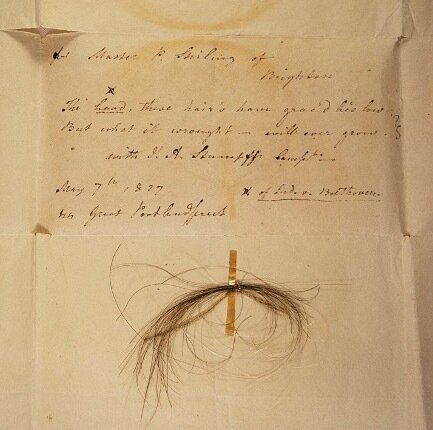 for Master P. Stirling of
Brighton
x
The head, these hair's have grac'd his low
But what it wrought – will ever grow.
with J. A. Stumpff's Compts –
May 7th, 1827
Great Portland street
x of Ludv. v. Beethoven.